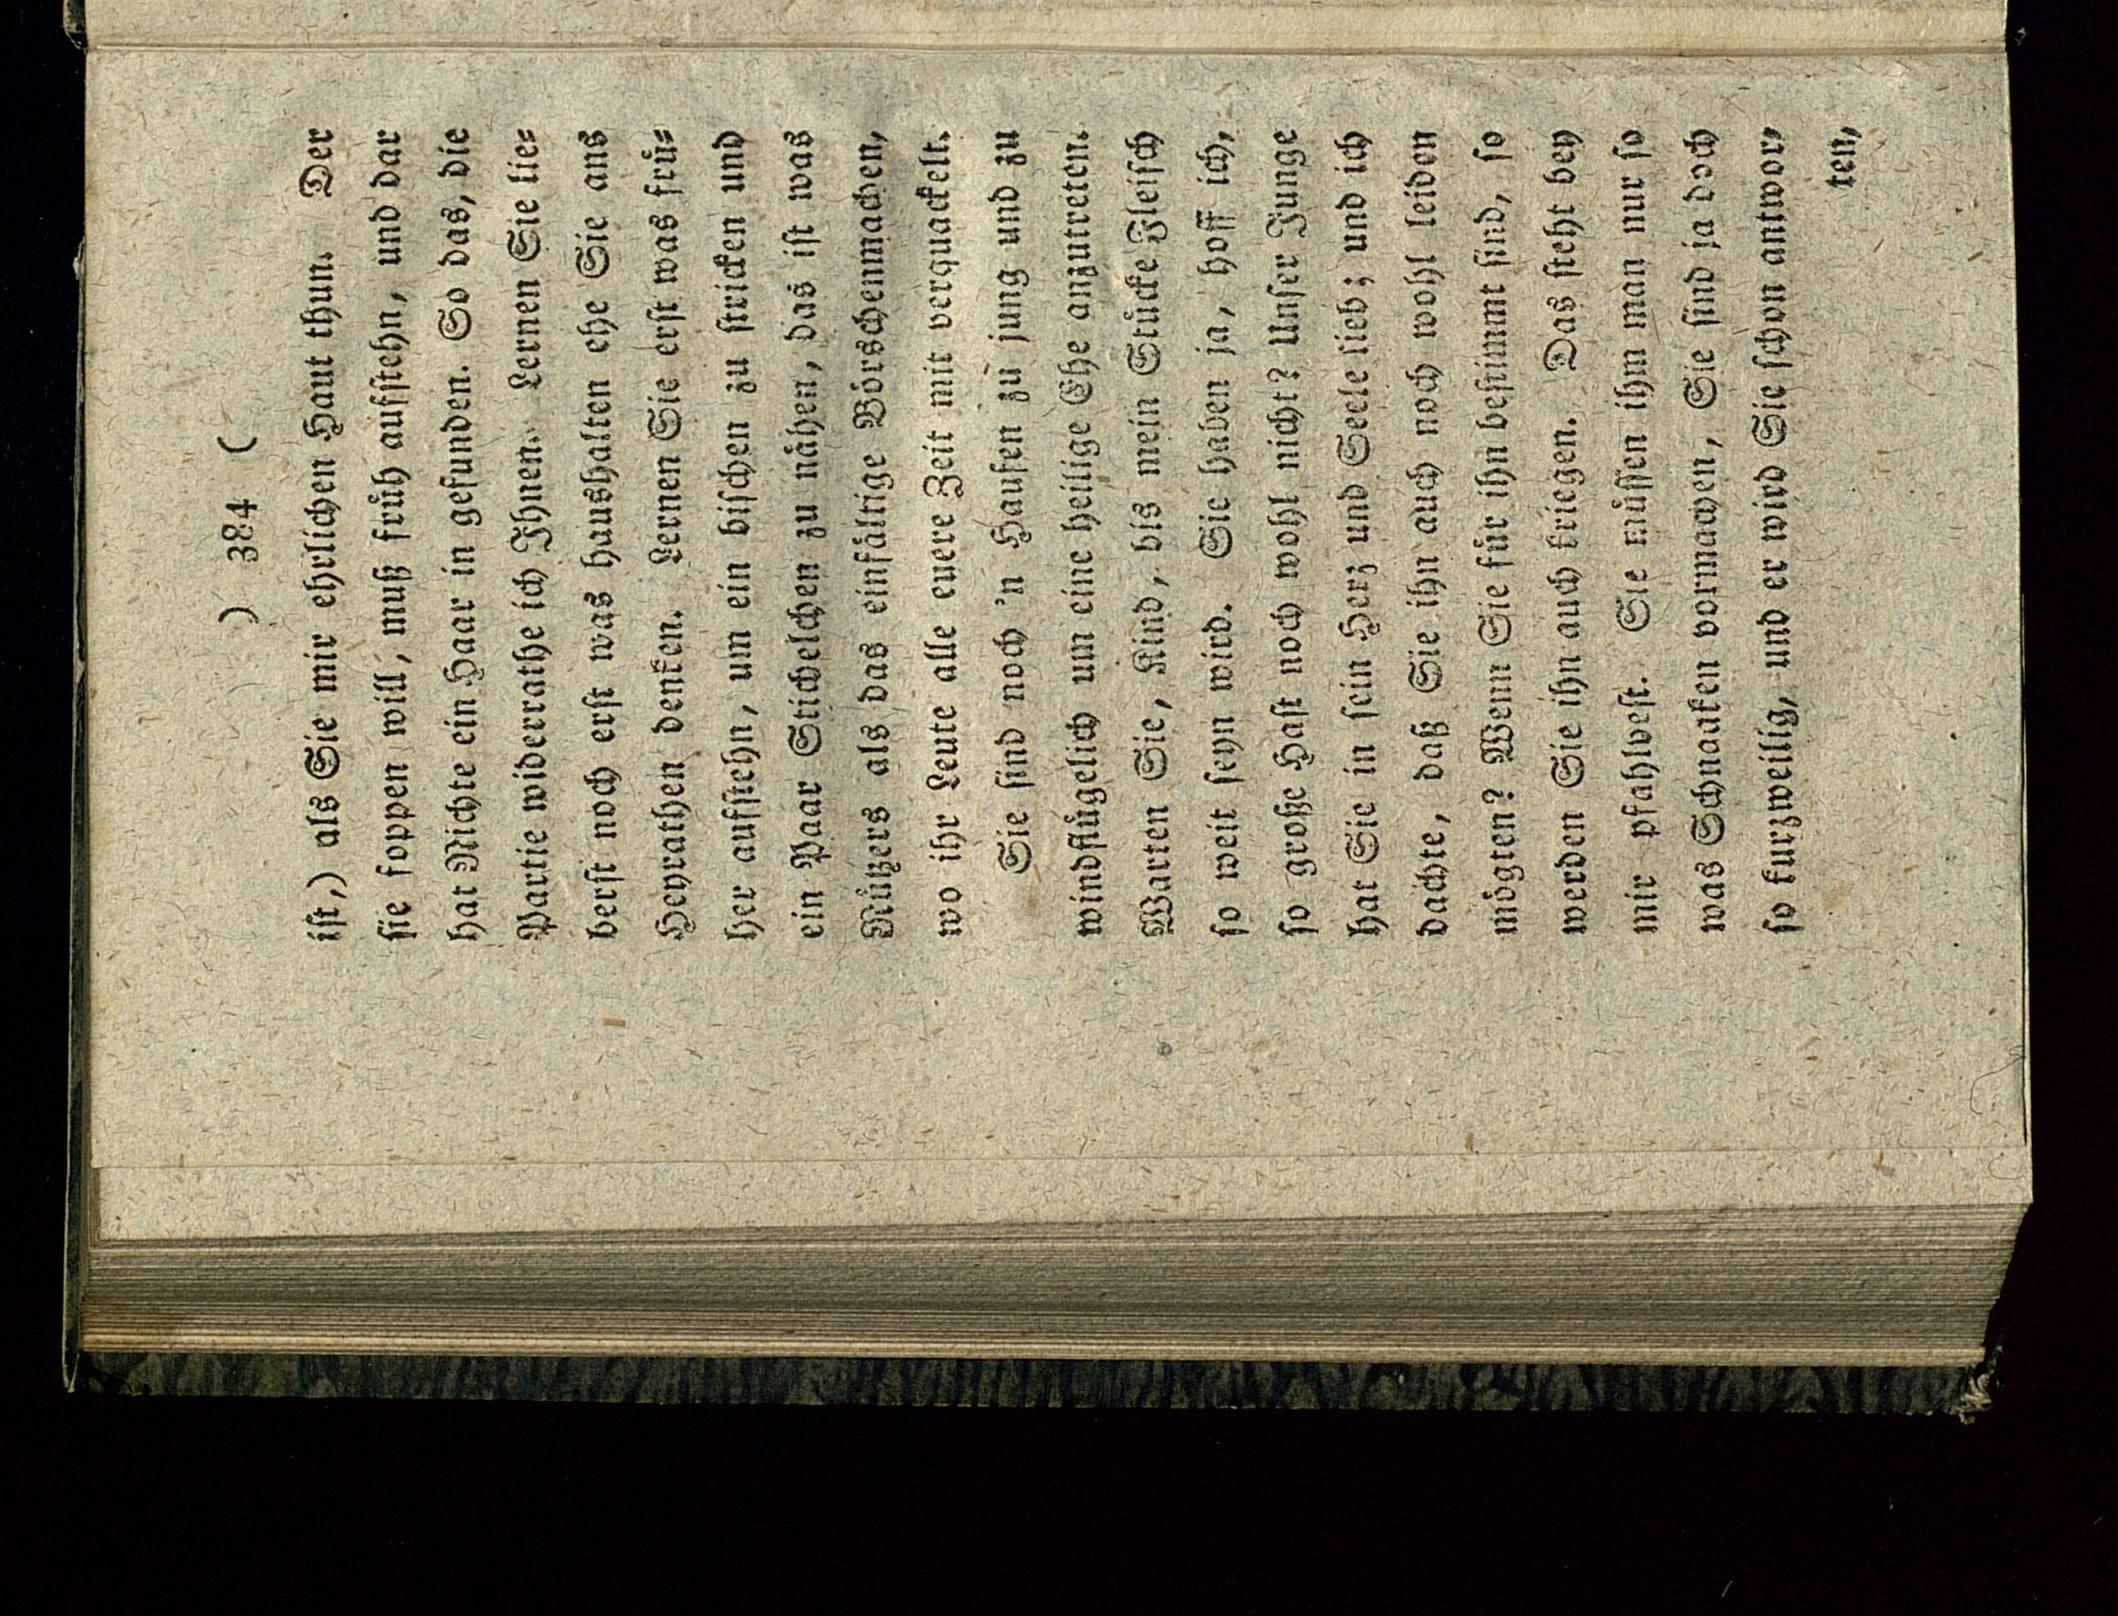 ) 384 (
iſt,) als Sie mir ehrlichen Haut thun. Der
ſie foppen will, muß fruͤh aufſtehn, und dar
hat Nichte ein Haar in gefunden. So das, die
Partie widerrathe ich Ihnen. Lernen Sie lie⸗
berſt noch erſt was haushalten ehe Sie ans
Heyrathen denken. Lernen Sie erſt was fruͤ⸗
her aufſtehn, um ein bischen zu ſtricken und
ein Paar Stichelchen zu naͤhen, das iſt was
Nuͤtzers als das einfaͤltige Voͤrschenmachen,
wo ihr Leute alle euere Zeit mit verquackelt.
Sie ſind noch 'n Haufen zu jung und zu
windfluͤgelich um eine heilige Ehe anzutreten.
Warten Sie, Kind, bis mein Stuͤcke Fleiſch
ſo weit ſeyn wird. Sie haben ja, hoff ich,
ſo große Haſt noch wohl nicht? Unſer Junge
hat Sie in ſein Herz und Seele lieb; und ich
daͤchte, daß Sie ihn auch noch wohl leiden
moͤgten? Wenn Sie fuͤr ihn beſtimmt ſind, ſo
werden Sie ihn auch kriegen. Das ſteht bey
mir pfahlveſt. Sie muͤſſen ihm man nur ſo
was Schnaaken vormachen, Sie ſind ja doch
ſo kurzweilig, und er wird Sie ſchon antwor⸗
ten,